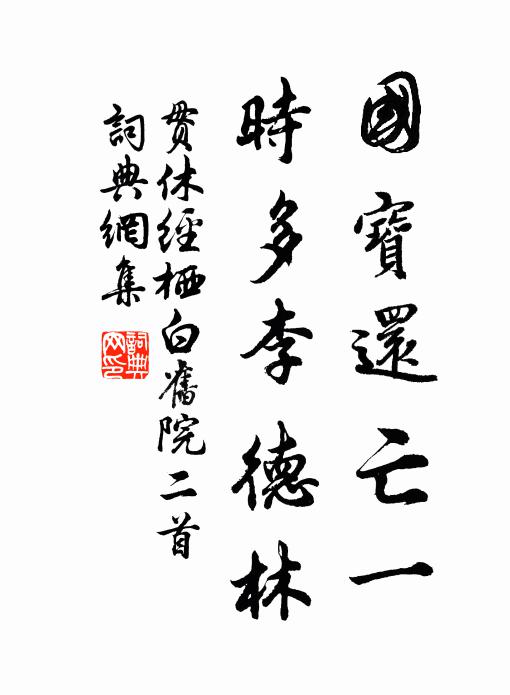 國寶還亡一
時多李德林
贯休經栖白舊院二首
詞典網集
詞典網印